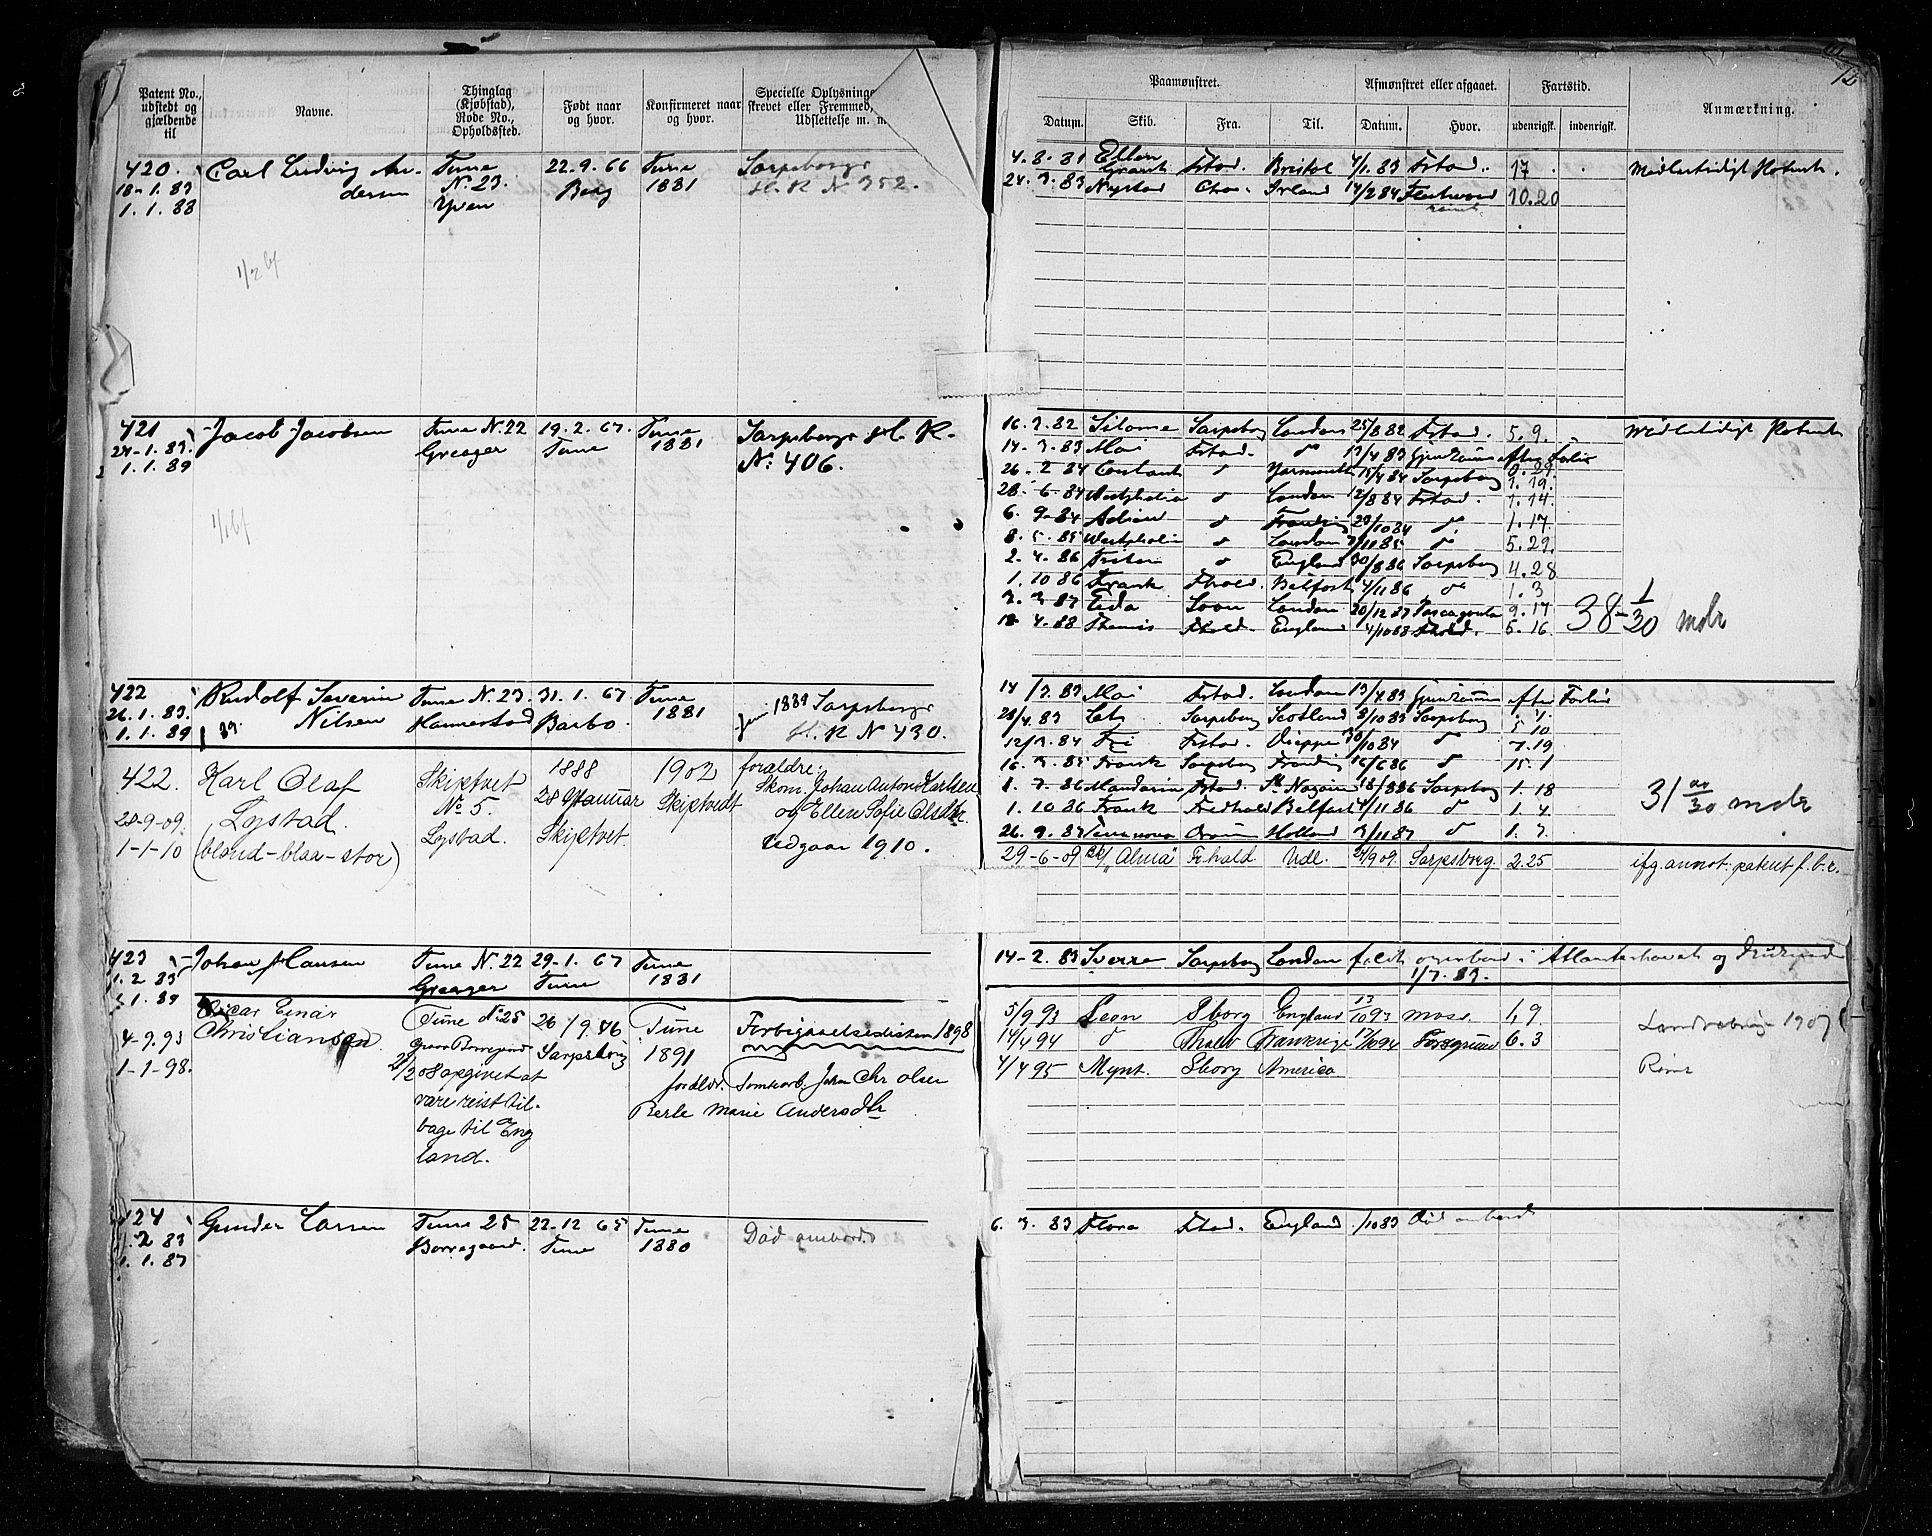 Patent No., udstedt og gjældende til
Navne.
Thinglag (Kjøbstad), Rode No., Opholdssted.
Født naar og hvor.
Konfirmeret naar og hvor.
Specielle Oplysninger
skrevet eller Fremmed,
Udslettelse m. m.
420.
18-1.83
1.1.88
Carl Ludvig An-
dersen
Tune
N. 23.
Yven
22.9.66
Berg
Tune
1881
Sarpsborgs
H. R N 352.
421
24-1.83.
1.1.89
Jacob Jacobsen
Tune N. 22
Greager
19.2.67.
Tune
Tune
1881
Sarpsborgs H. R.
N: 406.
422
26.1.83.
1.1.89
Rudolf Severin
Nilsen
Tune N. 23.
Hannestad
31.1.67
Barbo.
Tune
1881
1889 Sarpsborgs
H. R N 430.
422.
28-9-09.
1-1-10
Karl Olaf
Lystad.
(blond-blaa-stor)
Skiptvet
No 5.
Lystad.
1888
28 Januar
Skiptvet.
1902
Skiptvedt
forældre:
Skom. Johan Anton Karlsen
og Ellen Sofie Olsdtr.
Udgaar 1910.
423
1.2 83
1.89
Johan Hansen
Tune N. 22
Greager
29-1.67
Tune
Tune
1881
4-9.93
1-1-98.
Oscar Einar
Christiansen
Tune No 25
Borregaard
opgivet at
være reist til-
bage til Eng
land.
26/9.76
Sarpsborg
Tune
1891
Forbigaaelsesdisken 1898
foreldr. Tomtearb. Johan Chr Olsen
Berte Marie Andersdtr
424
1.2 83
1.1.87
Gunder Larsen
Tune 25
Borregaard.
22-12 65
Tune
Tune
1880
Død ombord.
Paamønstret.
Afmønstret eller afgaaet.
Fartstid.
Anmærkning.
Datum.
Skib.
Fra.
Til.
Datum.
Hvor.
udenrigsk.
indenrigsk.
4.8.81 Ellen Grant Frstad. Bristol 4/1.83 Frstad. 17
24.3.83 Nystad Chra. Irland 14/2 84 Fleetwood 10.20
16.3.82 Silome Sarpsborg London 25/8 82 Frstad. 5.9.
14.3.83 Mai Frstad. " 13/4 83 Grimstad efter Forlis
26.2 84 Constant " Yarmouth 15/4 84 Sarpsborg 1.19.
28.6.84 Westphalia " London 12/8 84 Frstad. 1.14
6.9-84 " 23/10 84 " 1.17.
8.5.85 Westphalia " London /11 85 " 5.29.
2.4.86 " England 30/8 86 Sarpsborg 4.28
1.10 86 Frank Fhald. Belfast 4/11 86 " 1.3
3.3 87 Eida Soon London 20/12 87 Pascagoula 9.17
18.4.88 Themis Fhald. England 4/10 88 Fhald. 5.16
38 1/30 mdr
14/3.83 Mai Frstad. London 13/4.83 efter Forlis
28/4.83 Sarpsborg Scotland 8/10 83 Sarpsborg 5 10
12/3.84 Fri Frstad. Dieppe 30/10 84 " 7.19
16.3.85 Frank Sarpsborg 16/6 86 " 15.1
1.7.86 Mandarin Frstad St Nazaire 18/8 86 Sarpsborg 1.18
1.10 86 Frank Fredhald Belfast 4/11 86 " 1.4
26.9.87 Terranova Holland 3/11 87 " 1.7
31 /30 mdr.
29-6-09 "Alma" Fr.hald. Udl. 24/9 09. Sarpsborg. 2.25 ifg. annot. patent f.b.r.
14-2.83 Sverre Sarpsborg London faldt overbord i Atlanterhavet og druknede
1/7.83.
5/9 93 Leon Sborg England 13/10 93 Moss 1,9
14/4 94 " Fhald Frankrige 17/10 94 Porsgrund 6.3
4/4 95 Mynt. Sborg America
6.3.83 Flora Frstad. England /10 83 Død ombord